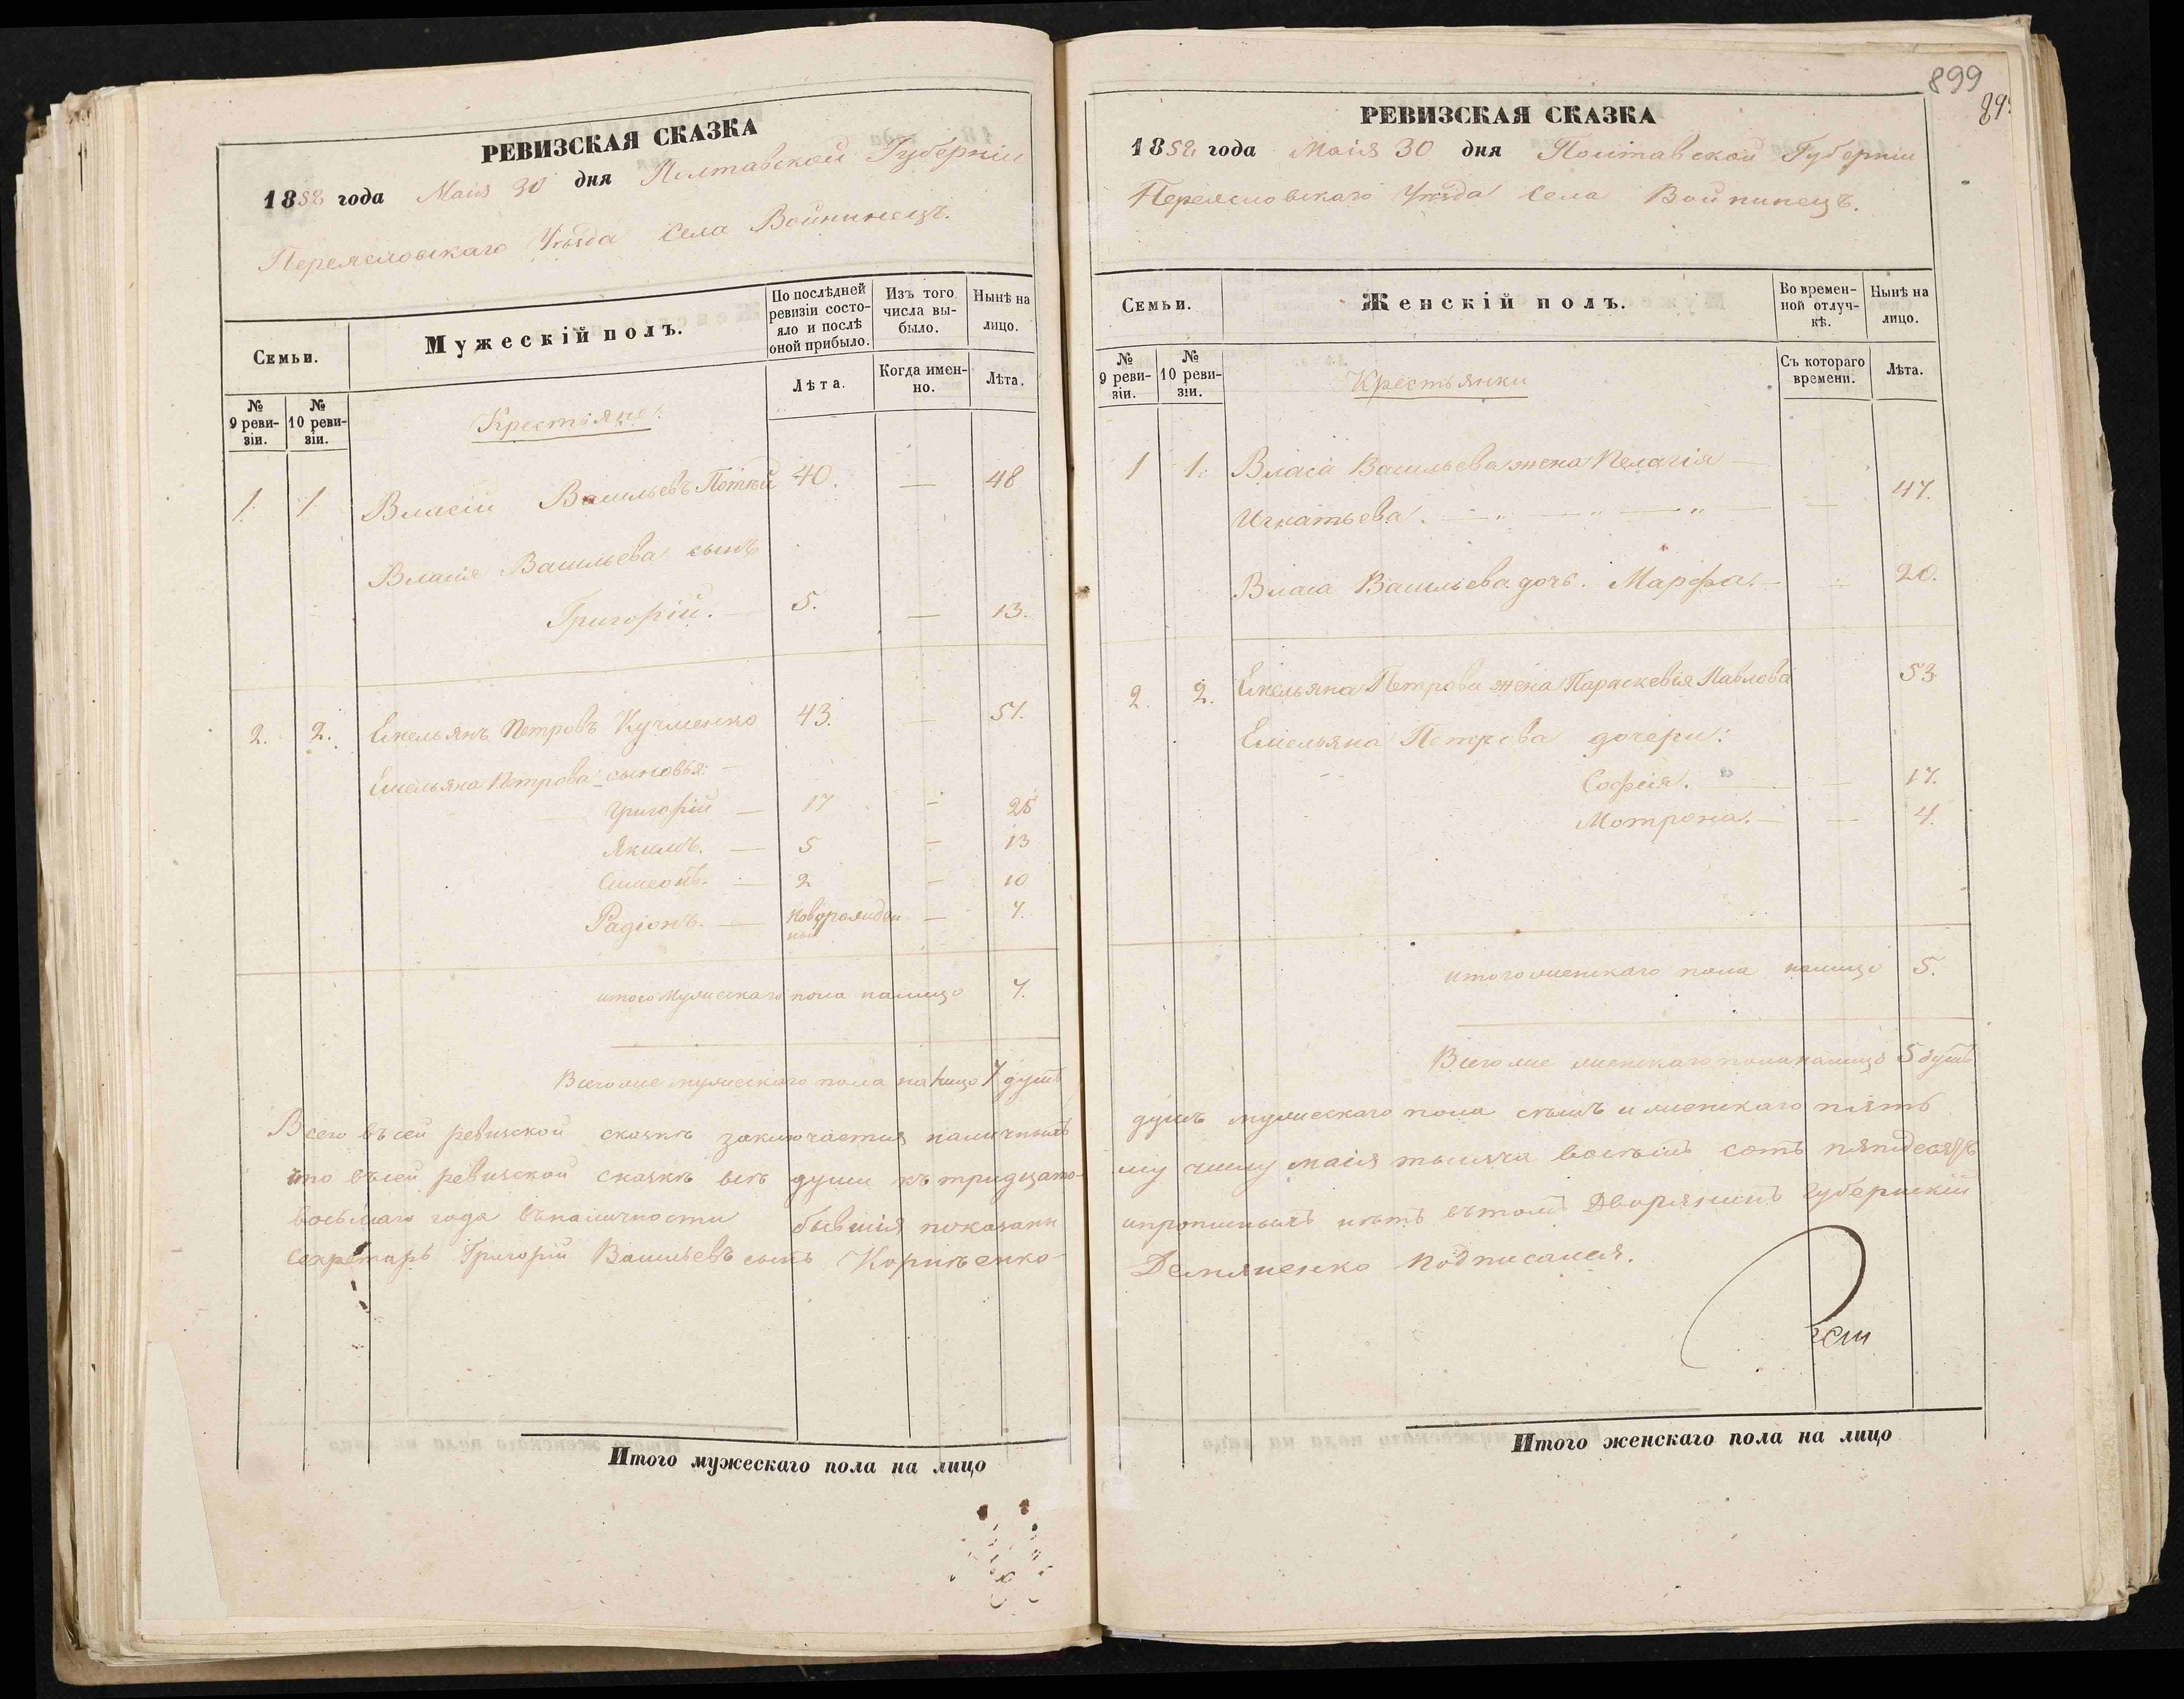 РЕВИЗСКАЯ СКАЗКА
1858 года Маія 30 дня Полтавской Губерніи
Переясловскаго Уѣзда Села Войнинецъ.
Семьи.
Мужескій полъ.
По послѣдней ревизіи состояло и послѣ оной прибыло.
Изъ того числа выбыло.
Нынѣ на лицо.
№ 9 ревизіи.
№ 10 ревизіи.
Лѣта.
Когда именно.
Лѣта.
Крестьяне:
1. 1 Власій Васильевъ 40. — 48
Власія Васильева сынъ
Григорій. — 5. — 13.
2. 2. Емельянъ Петровъ Кучменко 43. — 51.
Емельяна Петрова сыновья: —
Григорій — 17 — 25
Якимъ. — 5 — 13
Симеонъ. — 2 — 10
Радіонъ. — Новорожденный — 7.
итого Мужескаго пола налицо 7.
Всего же мужескаго пола налицо 7 душъ
Всего въ сей ревизской сказкѣ заключается наличныхъ
что въ сей ревизской сказкѣ всѣ души къ тридцато-
восьмаго года въ наличности бывшія показаны
Секретарь Григорій Васильевъ сынъ
Итого мужескаго пола на лицо
899
89
РЕВИЗСКАЯ СКАЗКА
1858 года Маія 30 дня Полтавской Губерніи
Переясловскаго Уѣзда Села Войнинецъ.
Семьи.
Женскій полъ.
Во временной отлучкѣ.
Нынѣ на лицо.
№ 9 ревизіи.
№ 10 ревизіи.
Съ котораго времени.
Лѣта.
Крестьянки
1 1. Власа Васильева жена Пелагія —
Игнатьева. — „ — „ — „ — — 47.
Власа Васильева дочь. Марфа. — 20.
2. 2. Емельяна Петрова жена Параскевія Павлова 53
Емельяна Петрова дочери:
Софія. — — 17.
Мотрона. — — 4.
итого женскаго пола налицо 5.
Всего же женскаго пола налицо 5 душъ
душъ мужескаго пола семь и женскаго пять
му числу маія тысяча восемь сотъ пятдесятъ
и прописныхъ нѣтъ въ томъ Дворянинъ Губернскій
Демяненко подписался.
Итого женскаго пола на лицо